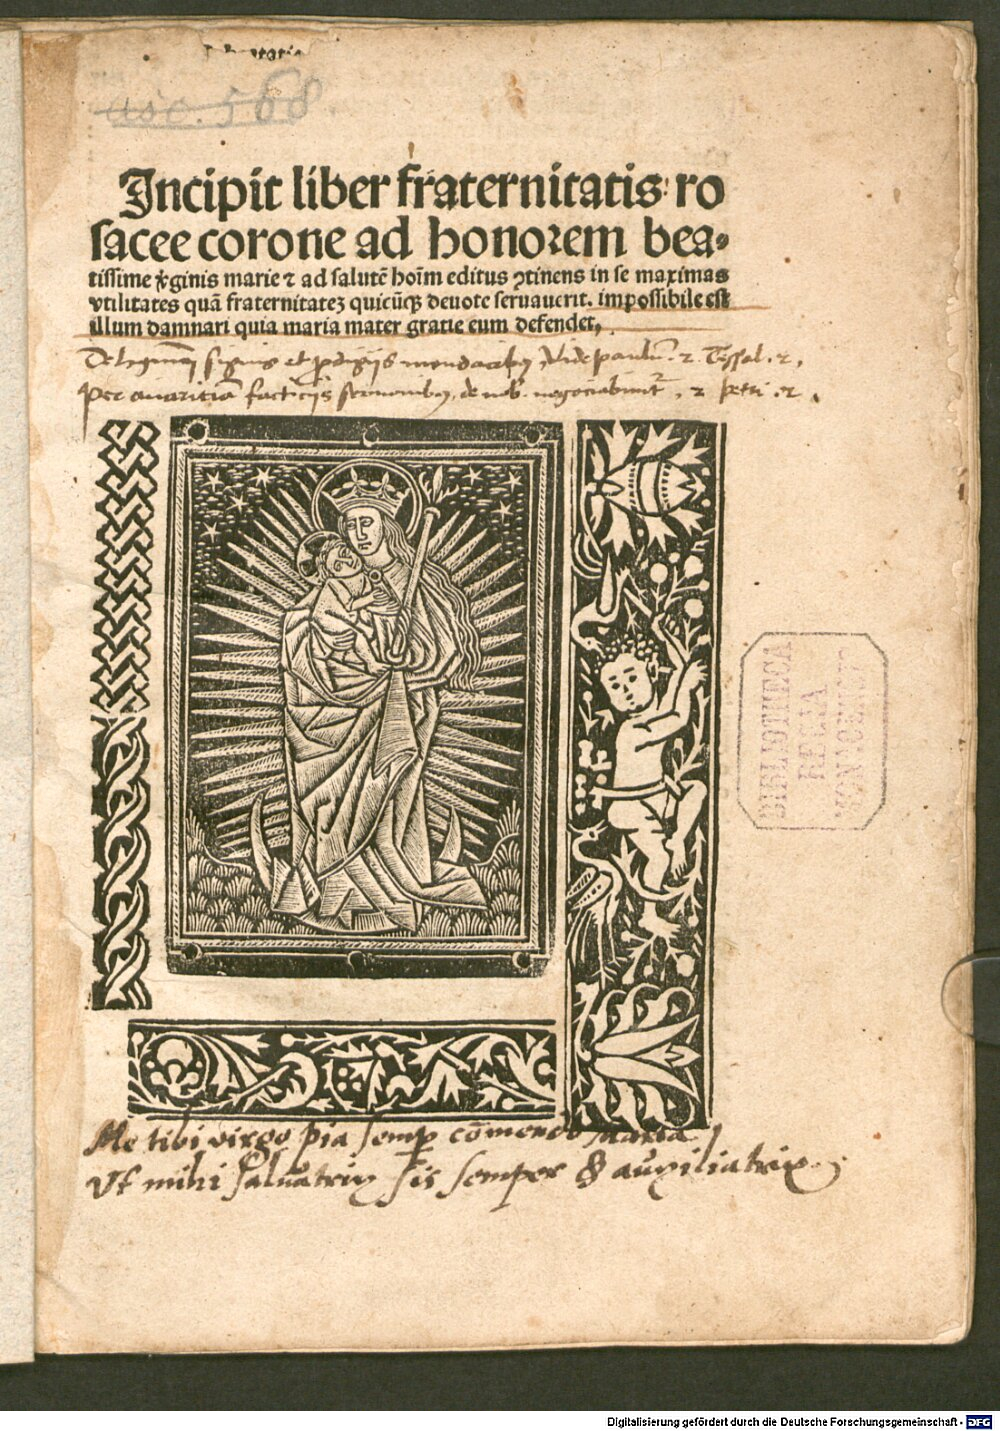 asc. 568
Incipit liber fraternitatis ro
sacee corone ad honorem bea⸗
tissime v̾ginis marie ⁊ ad salutē hoīm editus ꝯtinens in se maximas
vtilitates quā fraternitateʒ quicūqʒ deuote seruauerit. impossibile est
illum damnari quia maria mater gratie eum defendet,
signis et mendacibus, Vide paulū. 2. Tessal. 2.
Per avaritiā factitijs sermonibus, de vob. negotiabunt, 2 petri. 2.
BIBLIOTHECA
REGIA
MONACENSIS
Me tibi virgo pia semp cōmendo Maria
Vt mihi salvatrix sis semper & auxiliatrix.
Digitalisierung gefördert durch die Deutsche Forschungsgemeinschaft - DFG